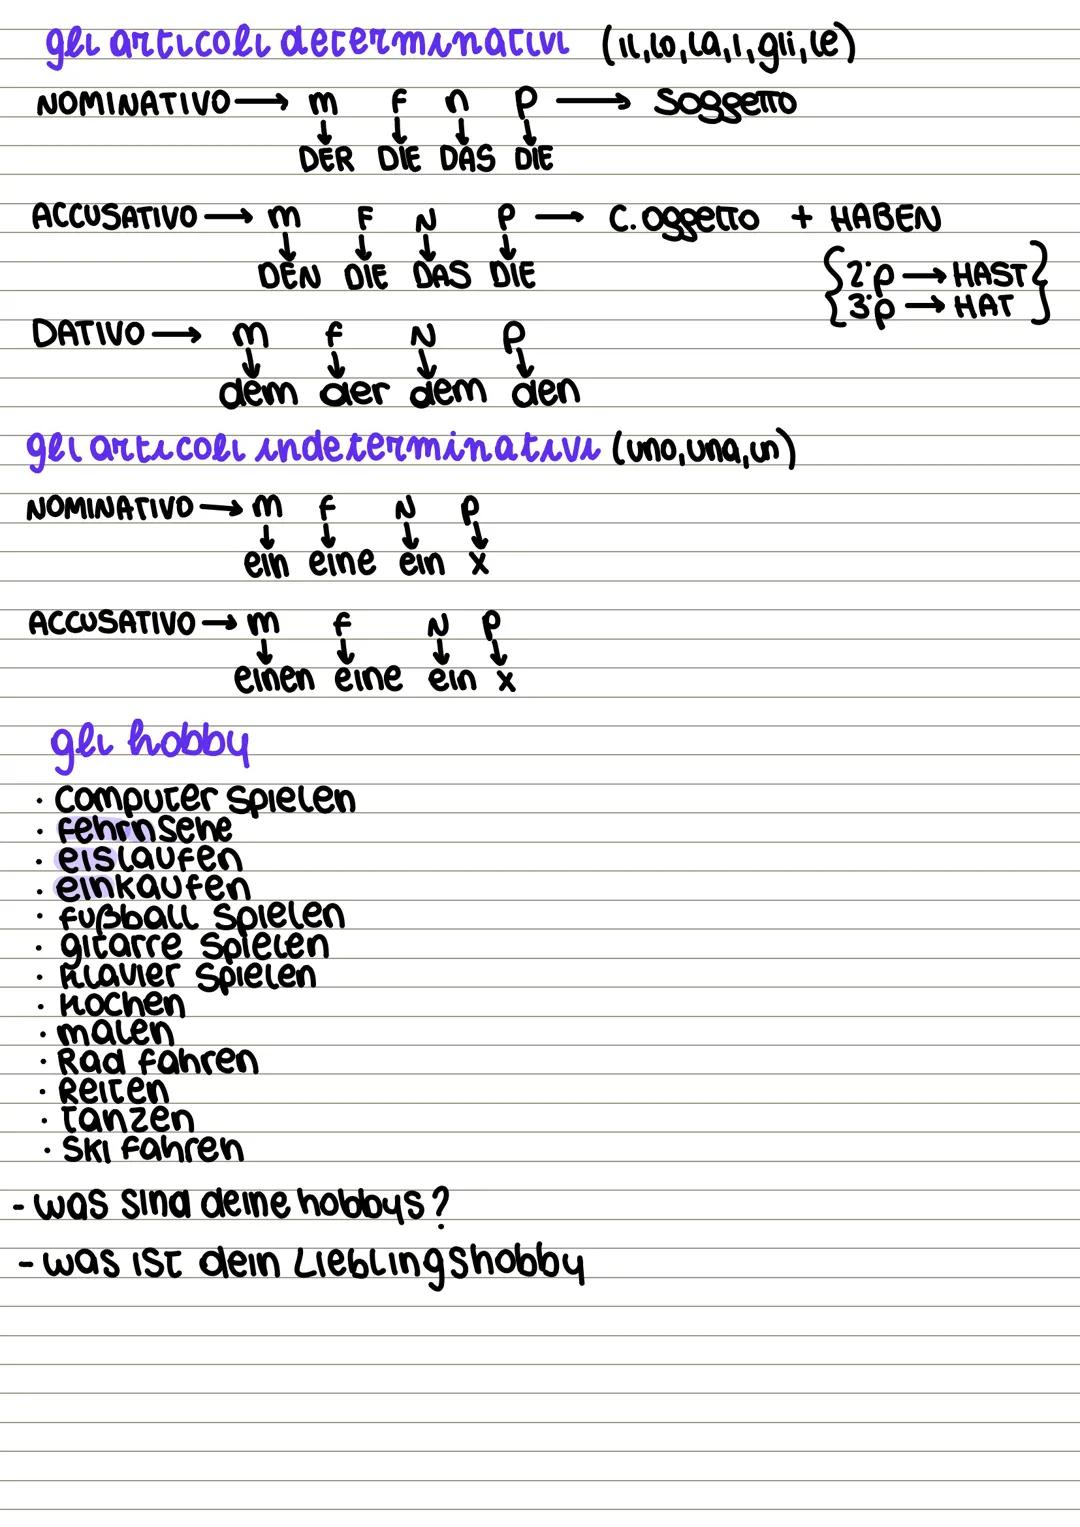 gli articoli determinativi (il,lo,la,i,gli,le)
NOMINATIVO → m f n p → soggetto
↓ ↓ ↓ ↓
DER DIE DAS DIE
ACCUSATIVO → m F N P → C.oggetto + HABEN
↓ ↓ ↓ ↓
DEN DIE DAS DIE
{2°p → HAST}
{3°p → HAT}
DATIVO → m f N p
↓ ↓ ↓ ↓
dem der dem den
gli articoli indeterminativi (uno,una,un)
NOMINATIVO → m f N p
↓ ↓ ↓ ↓
ein eine ein x
ACCUSATIVO → m f N p
↓ ↓ ↓ ↓
einen eine ein x
gli hobby
· computer spielen
· fehrnsehe
· eislaufen
· einkaufen
· fußball spielen
· gitarre spielen
· Klavier spielen
· Kochen
· malen
· Rad fahren
· Reiten
· Tanzen
· Ski fahren
- was sind deine hobbys?
- was ist dein Lieblingshobby